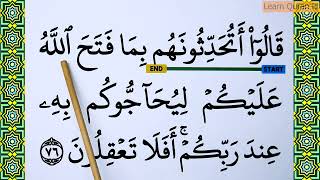 Learn Quran
قَالُوٓا۟ أَتُحَدِّثُونَهُم بِمَا فَتَحَ ٱللَّهُ
END START
عَلَيْكُمْ لِيُحَآجُّوكُم بِهِۦ
عِندَ رَبِّكُمْ ۚ أَفَلَا تَعْقِلُونَ ٧٦